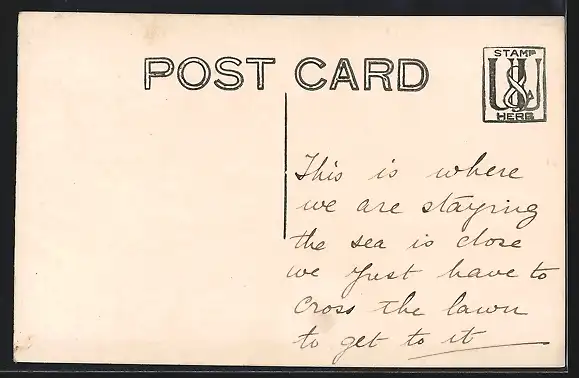 POST CARD
STAMP
HERE
This is where
we are staying
the sea is close
we just have to
cross the lawn
to get to it